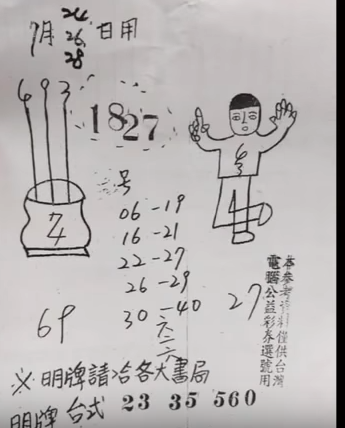 7月 24 26 28 日用
6 9 3
1827
号
06-19
16-21
22-27
26-29
30-40
六二六
7
69
27
本參考資料僅供台灣
電腦公益彩券選號用
※明牌請洽各大書局
明牌 台式 23 35 560